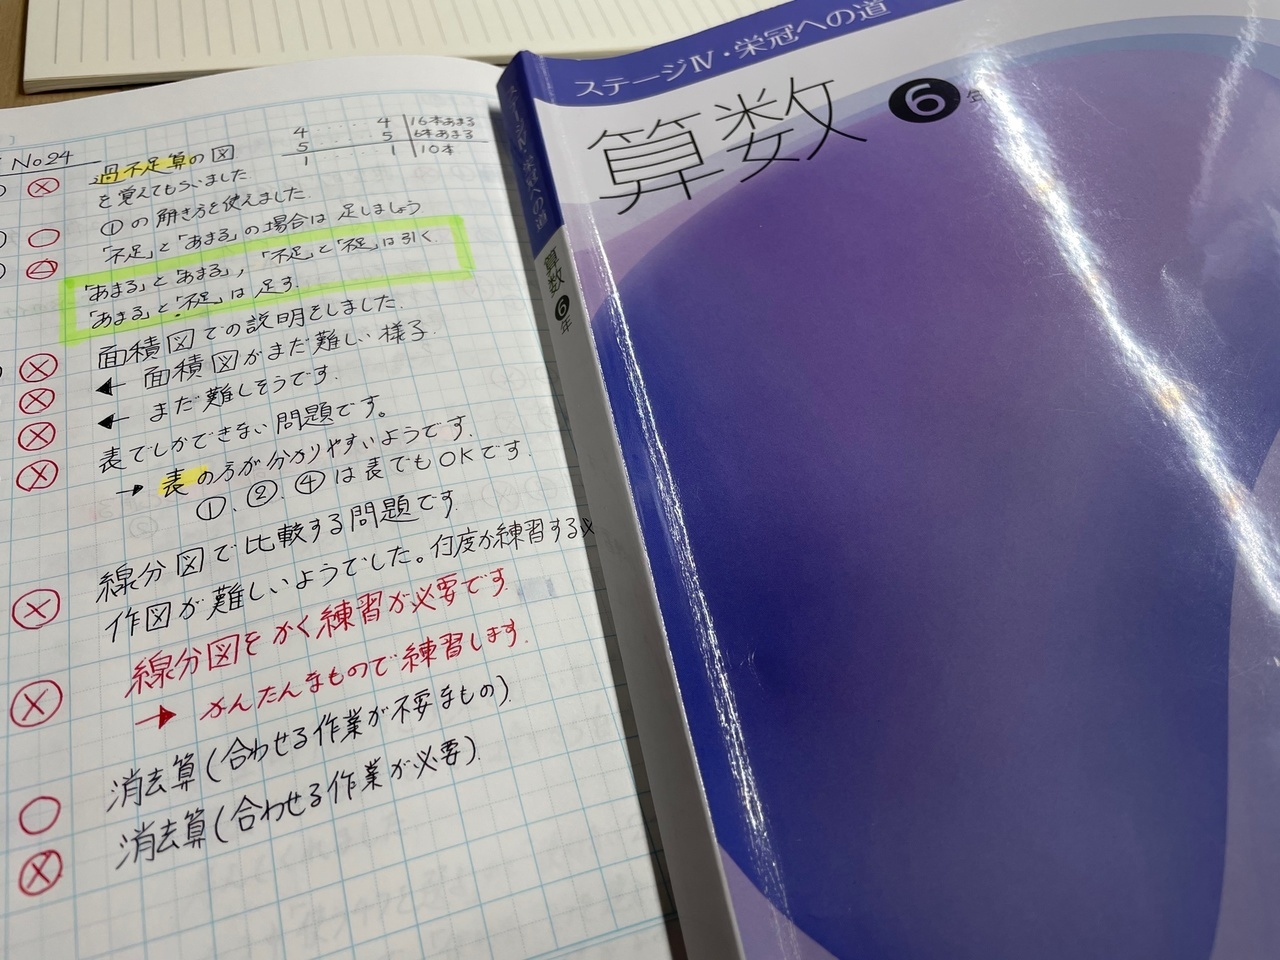 No24
過不足算の図
を覚えてもらいました
①の解き方を使えました.
「不足」と「あまる」の場合は足しましょう
「あまる」と「あまる」,「不足」と「不足」は引く.
「あまる」と「不足」は足す.
4 ···· 4 16本あまる
5 ···· 5 6本あまる
1 ···· 1 10本
面積図での説明をしました.
← 面積図がまだ難しい様子
← まだ難しそうです.
表でしかできない問題です。
→ 表の方が分かりやすいようです.
①、②、④は表でもOKです.
線分図で比較する問題です.
作図が難しいようでした。何度か練習する
線分図をかく練習が必要です.
→ かんたんなもので練習します.
消去算(合わせる作業が不要なもの)
消去算(合わせる作業が必要).
ステージⅣ・栄冠への道
算数 6年
ステージⅣ・栄冠への道
算数 6年